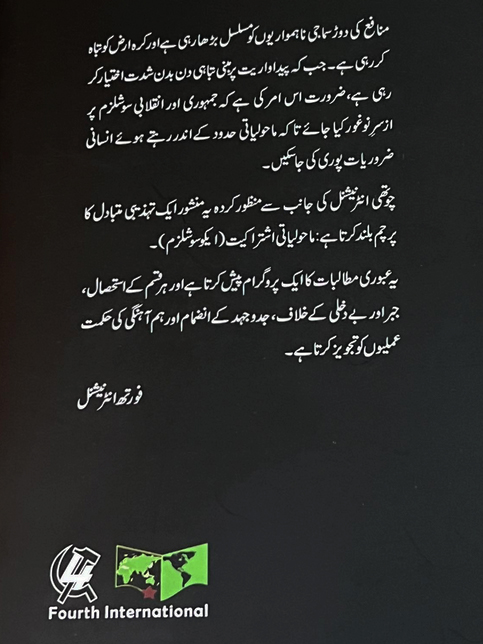 منافع کی دوڑ سماجی ناہمواریوں کو مسلسل بڑھا رہی ہے اور کرہ ارض کو تباہ
کر رہی ہے۔ جب کہ پیداواریت پر مبنی تباہی دن بدن شدت اختیار کر
رہی ہے، ضرورت اس امر کی ہے کہ جمہوری اور انقلابی سوشلزم پر
از سرِ نو غور کیا جائے تاکہ ماحولیاتی حدود کے اندر رہتے ہوئے انسانی
ضروریات پوری کی جا سکیں۔
چوتھی انٹرنیشنل کی جانب سے منظور کردہ یہ منشور ایک تہذیبی متبادل کا
پرچم بلند کرتا ہے: ماحولیاتی اشتراکیت (ایکو سوشلزم)۔
یہ عبوری مطالبات کا ایک پروگرام پیش کرتا ہے اور ہر قسم کے استحصال،
جبر اور بے دخلی کے خلاف، جدوجہد کے انضمام اور ہم آہنگی کی حکمت
عملیوں کو تجویز کرتا ہے۔
فورتھ انٹرنیشنل
4
Fourth International